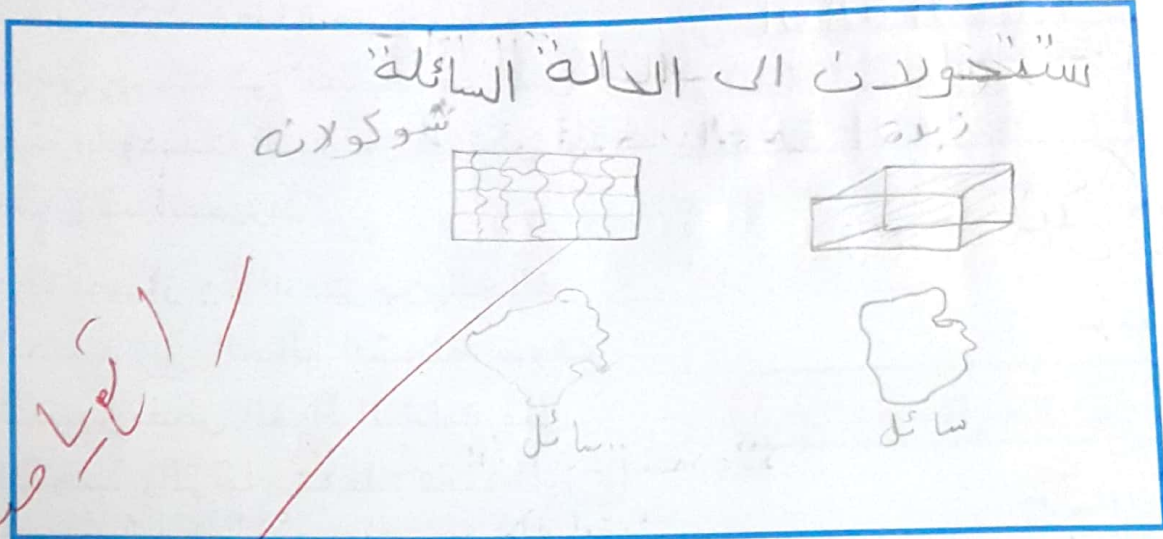 ستتحولان الى الحالة السائلة
زبدة شوكولاته
سائل سائل